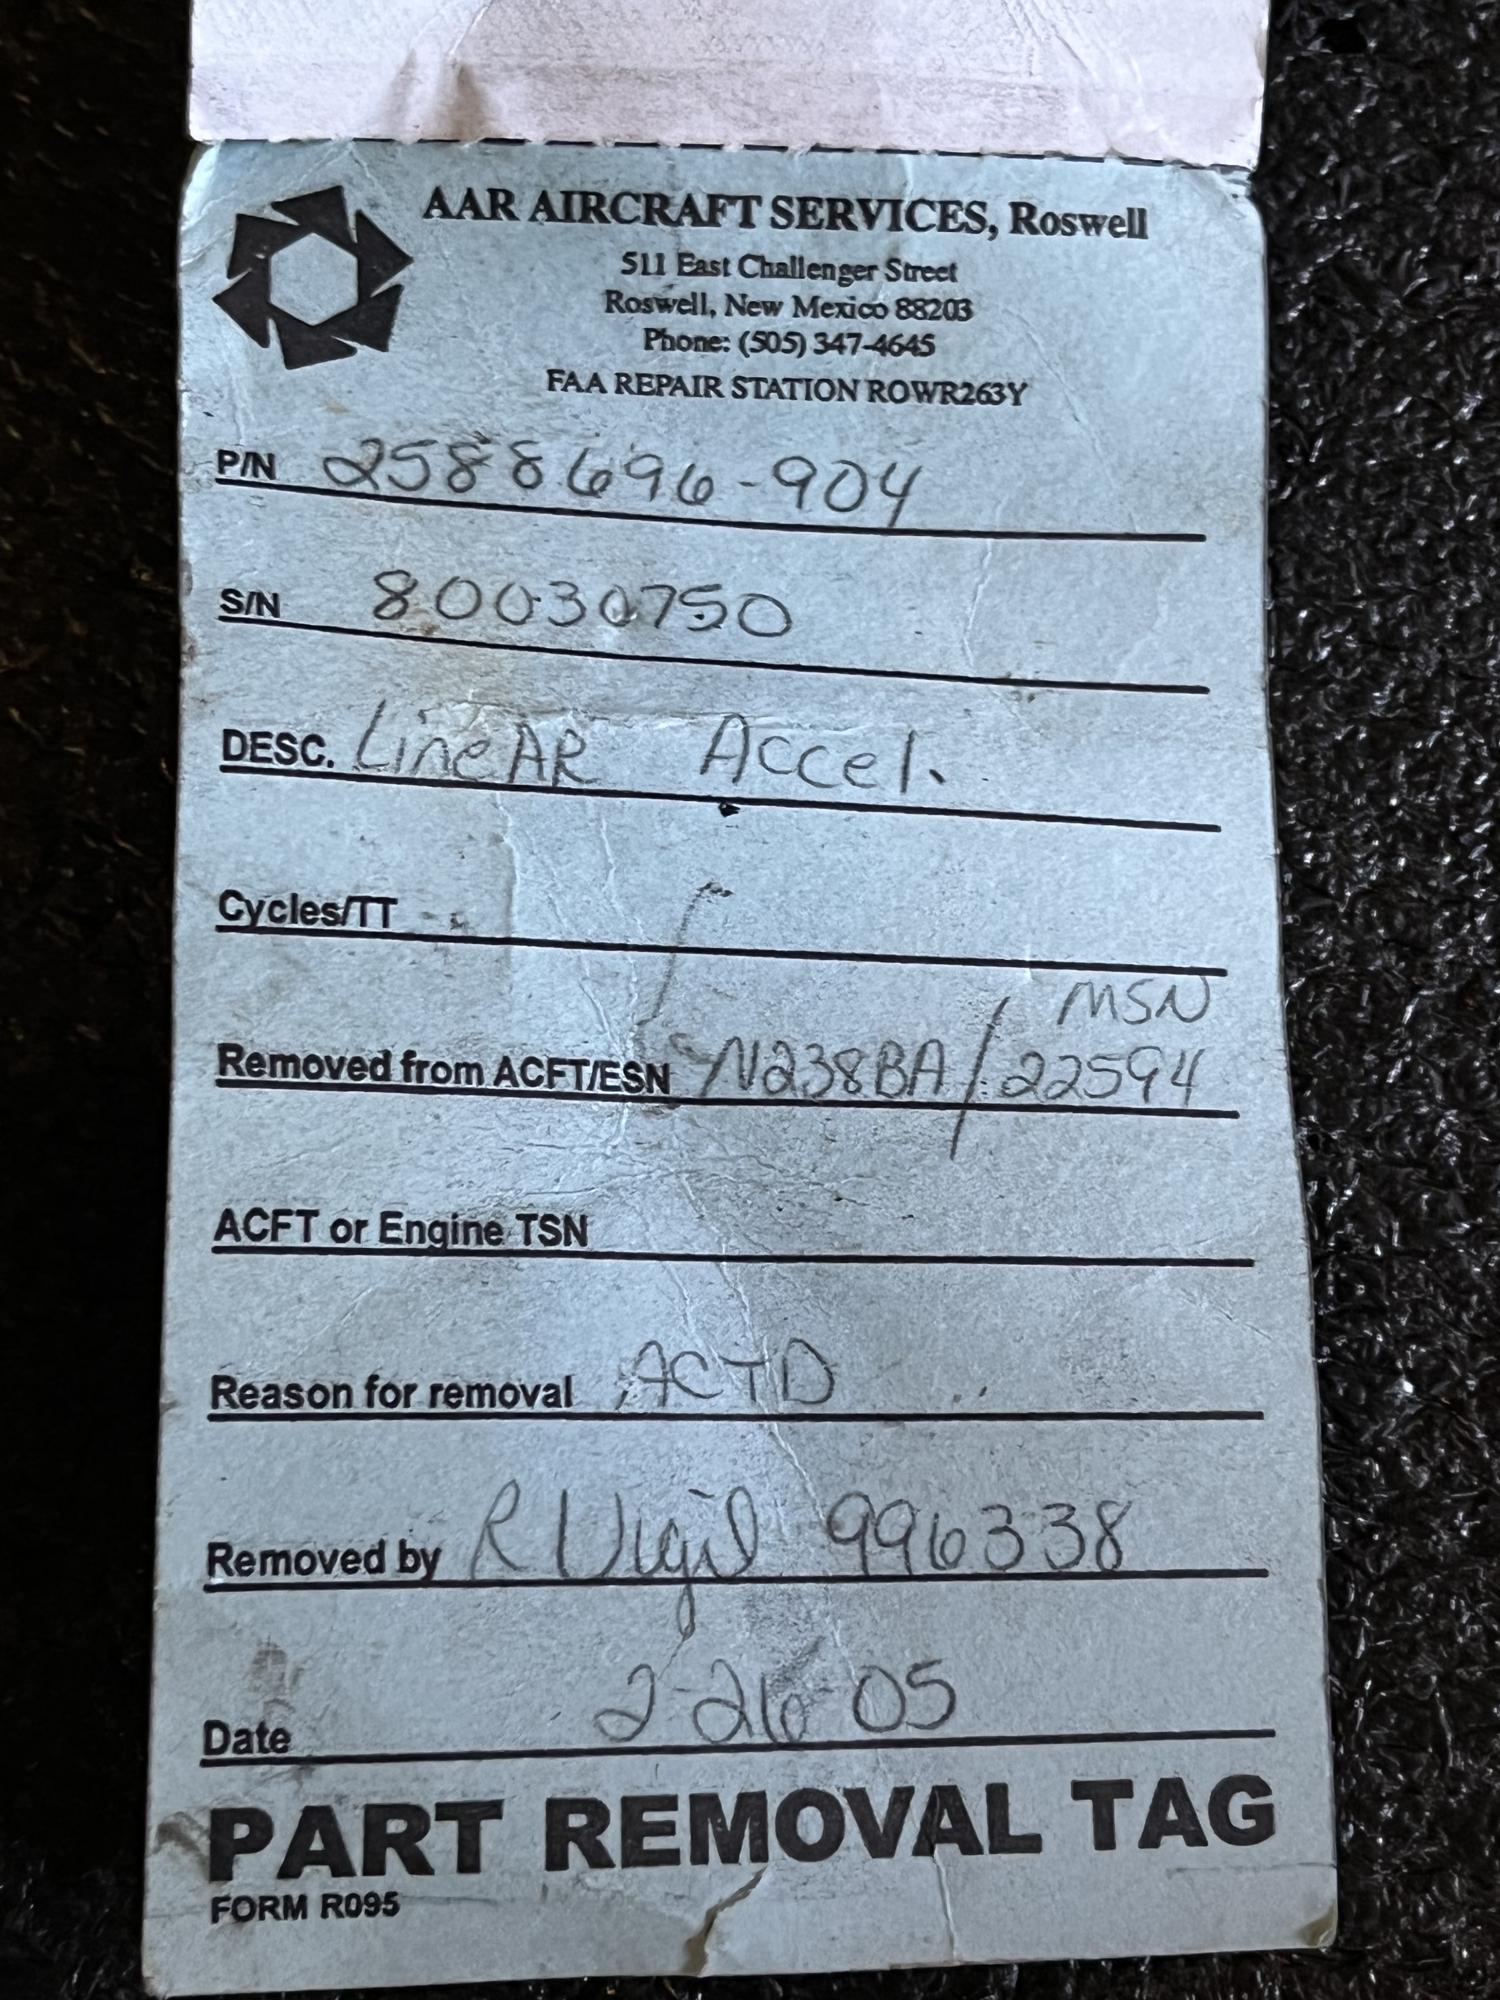 AAR AIRCRAFT SERVICES, Roswell
511 East Challenger Street
Roswell, New Mexico 88203
Phone: (505) 347-4645
FAA REPAIR STATION ROWR263Y
P/N 2588696-904
S/N 80030750
DESC. LineAR Accel.
Cycles/TT
MSN
Removed from ACFT/ESN N238BA / 22594
ACFT or Engine TSN
Reason for removal ACTD
Removed by R Vigil 996338
Date 2-26-05
PART REMOVAL TAG
FORM R095